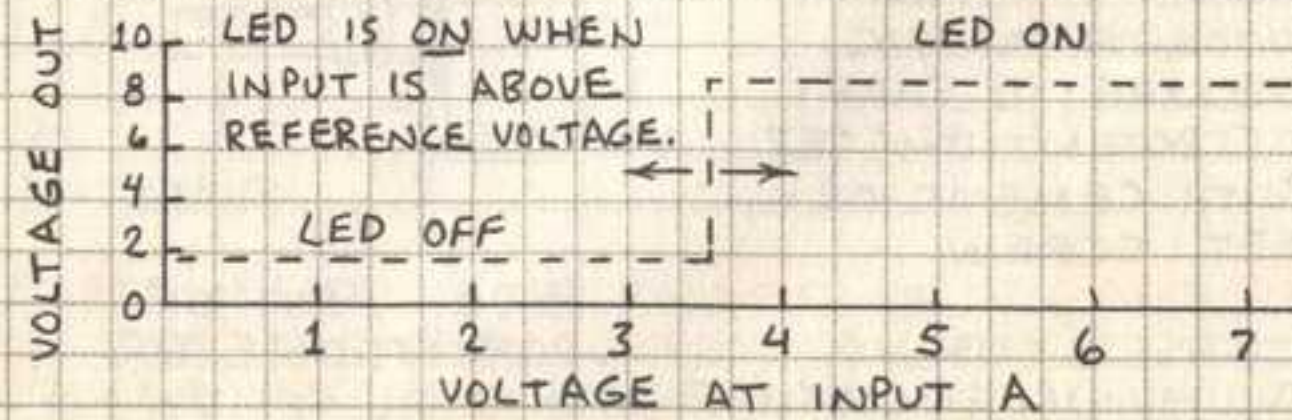 VOLTAGE OUT
10
8
6
4
2
0
LED IS ON WHEN
INPUT IS ABOVE
REFERENCE VOLTAGE.
LED ON
LED OFF
1 2 3 4 5 6 7
VOLTAGE AT INPUT A